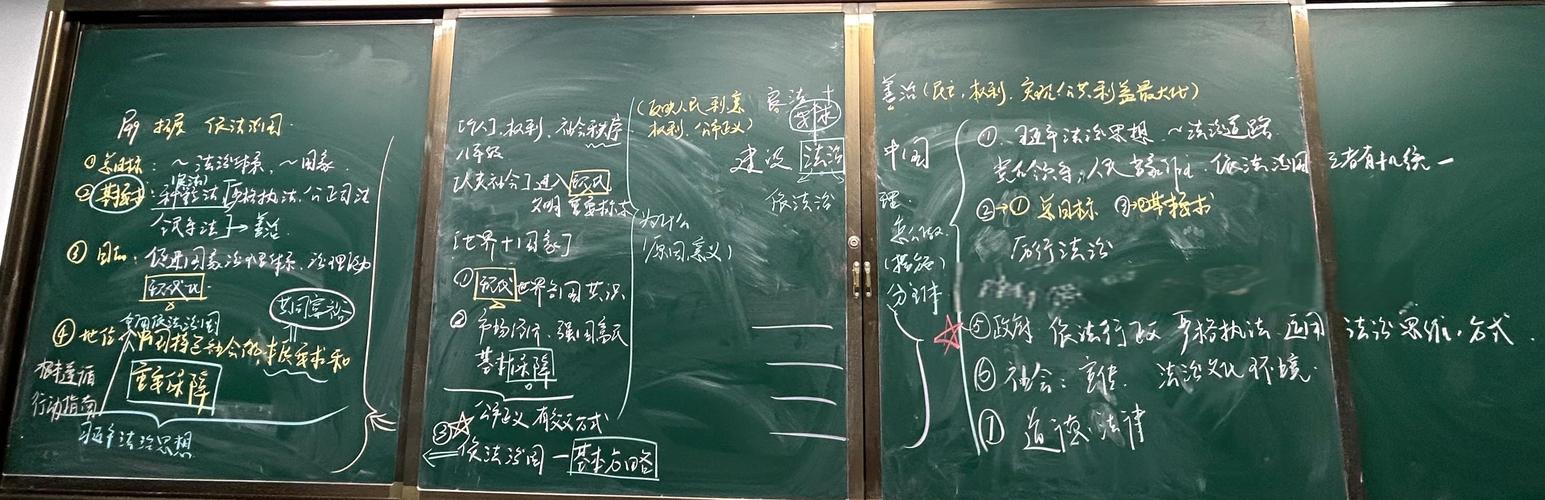 依法治国
①总目标：～法治体系，～国家
②基本要求：科学立法 严格执法，公正司法
全民守法 → 善治
③目标：促进国家治理体系、治理能力
现代化
共同富裕
全面依法治国
④地位
本质要求和
重要保障
根本遵循
行动指南
习近平法治思想
[个人]，权利，社会秩序
[人类社会]进入现代
文明 重要标志
[世界十国家]
①现代世界各国共识
②市场经济，强国富民
基本保障
③☆公平正义 有效方式
依法治国 — 基本方略
(反映人民利益
权利，公平正义)
为什么
(原因，意义)
良法 十
要求
建设 法治
依法治
善治(民主，权利，实现公共利益最大化)
中国
理
怎么做
(措施)
分主体
①习近平法治思想 ～法治道路
党的领导，人民当家作主，依法治国 三者有机统一
②→① 总目标 ③→②基本要求
厉行法治
☆⑤政府 依法行政 严格执法 运用 法治思维，方式.
⑥社会：宣传 法治文化环境
⑦ 道德·法律